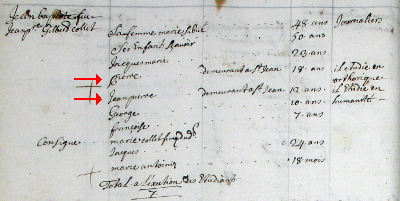 Jean baptiste feu
Jean gilbert collet 48 · ans Journalier
Sa femme marie 50 ans
Ses Enfans Savoir
Jacques marie 23 · ans
Pierre demeurant a St Jean 18 · ans il Etudie en rethorique
Jean pierre demeurant a St Jean 12 · ans il Etudie en humanité
George 10 · ans
françoise 7 · ans
Consigne marie collet
Jacques · 24 · ans
marie antoinez · 18 mois
Total a L'exception des Etudiants
7